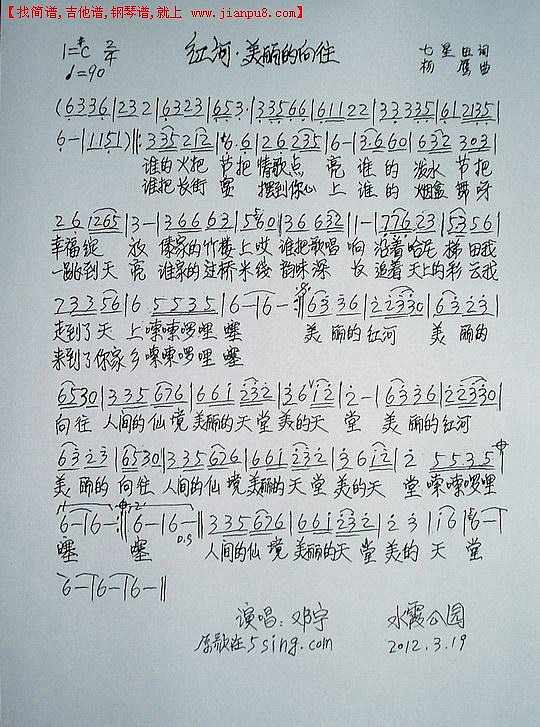 【找简谱,吉他谱,钢琴谱,就上 www.jianpu8.com】
1=#C 2/4 红河·美丽的向往 七星田词
♩=90 杨鹰曲
(6336|232|6323|653·|33566|61122|33335|612135|
6-|1151)‖:335212|6·6|26235|6-|3·660|632 303|
谁的火把 节把 情歌点 亮 谁的 泼水 节把
谁把长街 宴 摆到你心 上 谁的 烟盒 舞牙
26 1265|3-|36663|5 60|36 632|1-|77623|5356|
幸福绽 放 傣家的竹楼上哎 谁把歌唱 响 沿着哈尼 梯田我
一跳到天 亮 谁家的过桥米线 韵味深 长 追着天上的彩 云我
27 3356|6 5535|6-|6-:‖6336|22330|6323|
走到了天 上嗦嗦啰哩 噻 美 丽的红河 美 丽的
来到了你家乡嗦嗦啰哩 噻
6530|335 676|661 232|36 12|2-|6336|22330|
向往 人间的仙 境美丽的天 堂美的天 堂 美 丽的红河
6323|6530|335 676|661 232|36 12|2 5535|
美 丽的 向往 人间的仙 境美丽的天 堂美的天 堂嗦嗦啰哩
6-|6-:‖6-|6-‖335 676|661 232|2 3|16|6-|
噻 噻 D.S 人间的仙 境美丽的天 堂美的 天 堂
6-|6-|6-‖
演唱:邓宇 水霞公园
原歌在5sing.com 2012.3.19